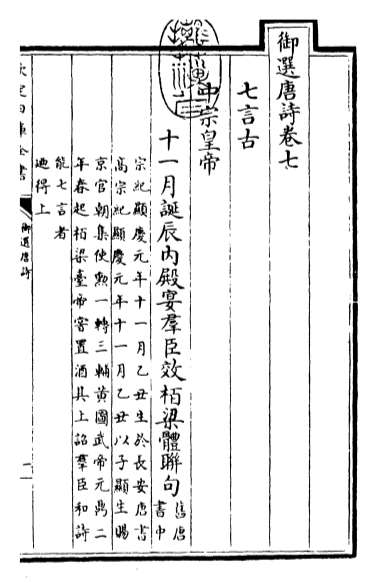 御選唐詩卷七
七言古
中宗皇帝
十一月誕辰內殿宴羣臣效栢梁體聯句 舊唐
書中
宗紀顯慶元年十一月乙丑生於長安唐書
高宗紀顯慶元年十一月乙丑以子顯生賜
京官朝集使勲一轉三輔黃圖武帝元鼎二
年春起栢梁臺帝嘗置酒其上詔羣臣和詩
能七言者
廼得上
御選唐詩